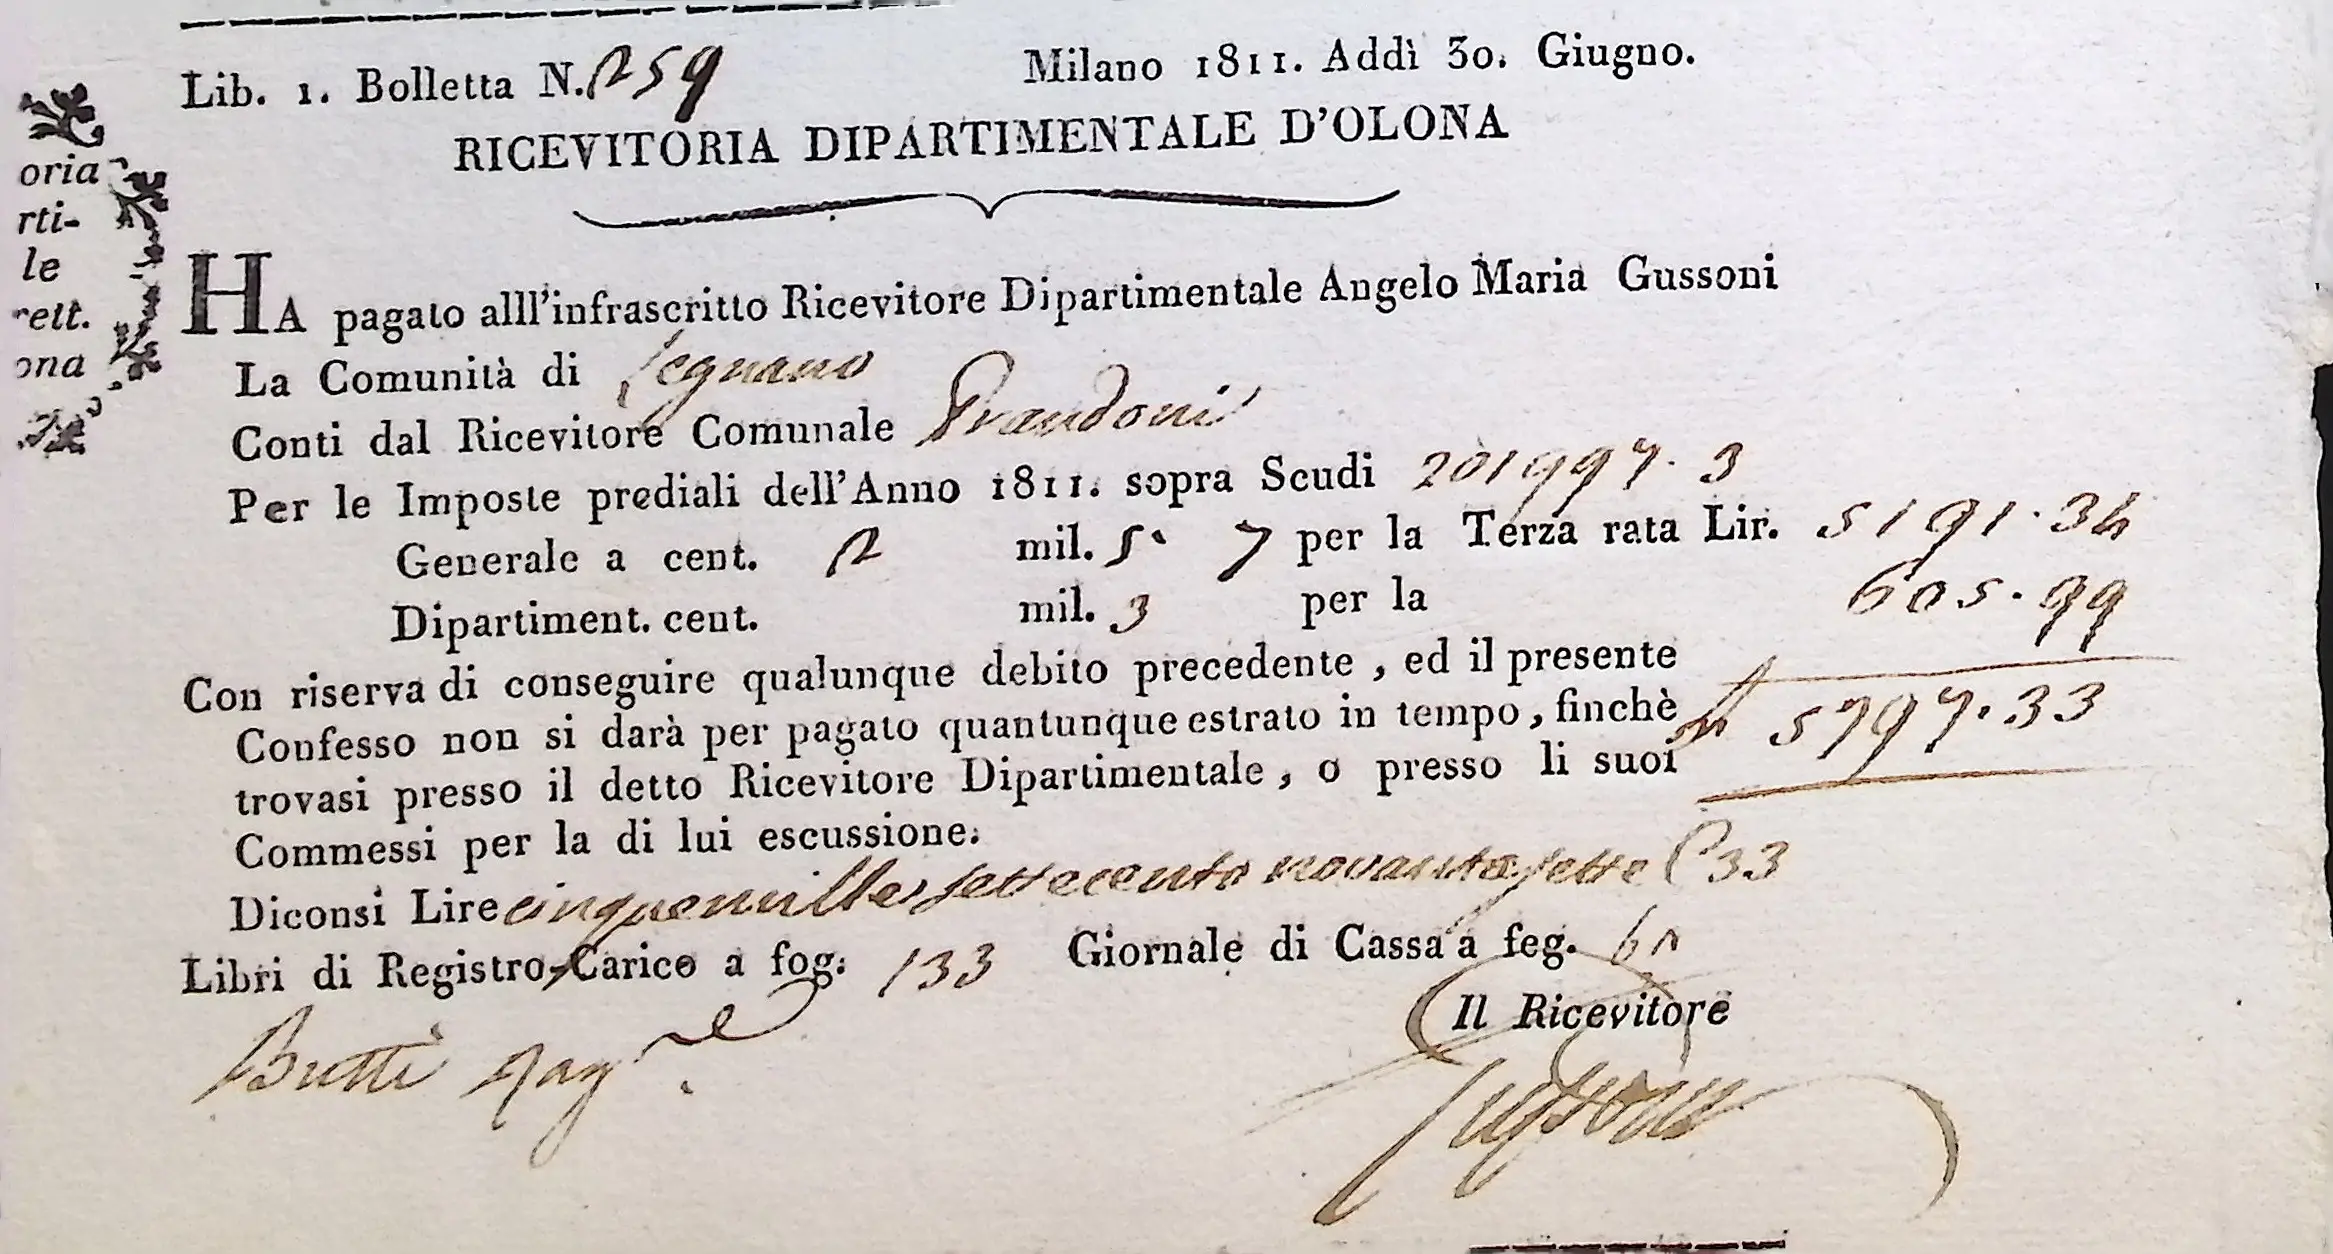 Lib. 1. Bolletta N. 259
Milano 1811. Addì 30. Giugno.
RICEVITORIA DIPARTIMENTALE D'OLONA
oria
rti-
le
rett.
ona
HA pagato alll'infrascritto Ricevitore Dipartimentale Angelo Maria Gussoni
La Comunità di Legnano
Conti dal Ricevitore Comunale Prandoni
Per le Imposte prediali dell'Anno 1811. sopra Scudi 201997. 3
Generale a cent. 2 mil. 5. 7 per la Terza rata Lir. 5191.34
Dipartiment. cent. mil. 3 per la 605.99
Con riserva di conseguire qualunque debito precedente, ed il presente
Confesso non si darà per pagato quantunque estrato in tempo, finchè 5797.33
trovasi presso il detto Ricevitore Dipartimentale, o presso li suoi
Commessi per la di lui escussione.
Diconsi Lire cinquemille settecento novantasette C 33
Libri di Registro, Carico a fog. 133 Giornale di Cassa a feg.
Il Ricevitore
Butti Rag.re
Gussoni